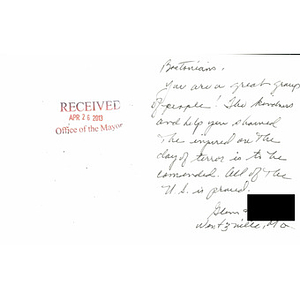 RECEIVED
APR 26 2013
Office of the Mayor
Bostonians,
You are a great group
of people! The kindness
and help you showed
the injured on the
day of terror is to be
comended. All of the
U.S. is proud.
Glenn
Wentzville, Mo.